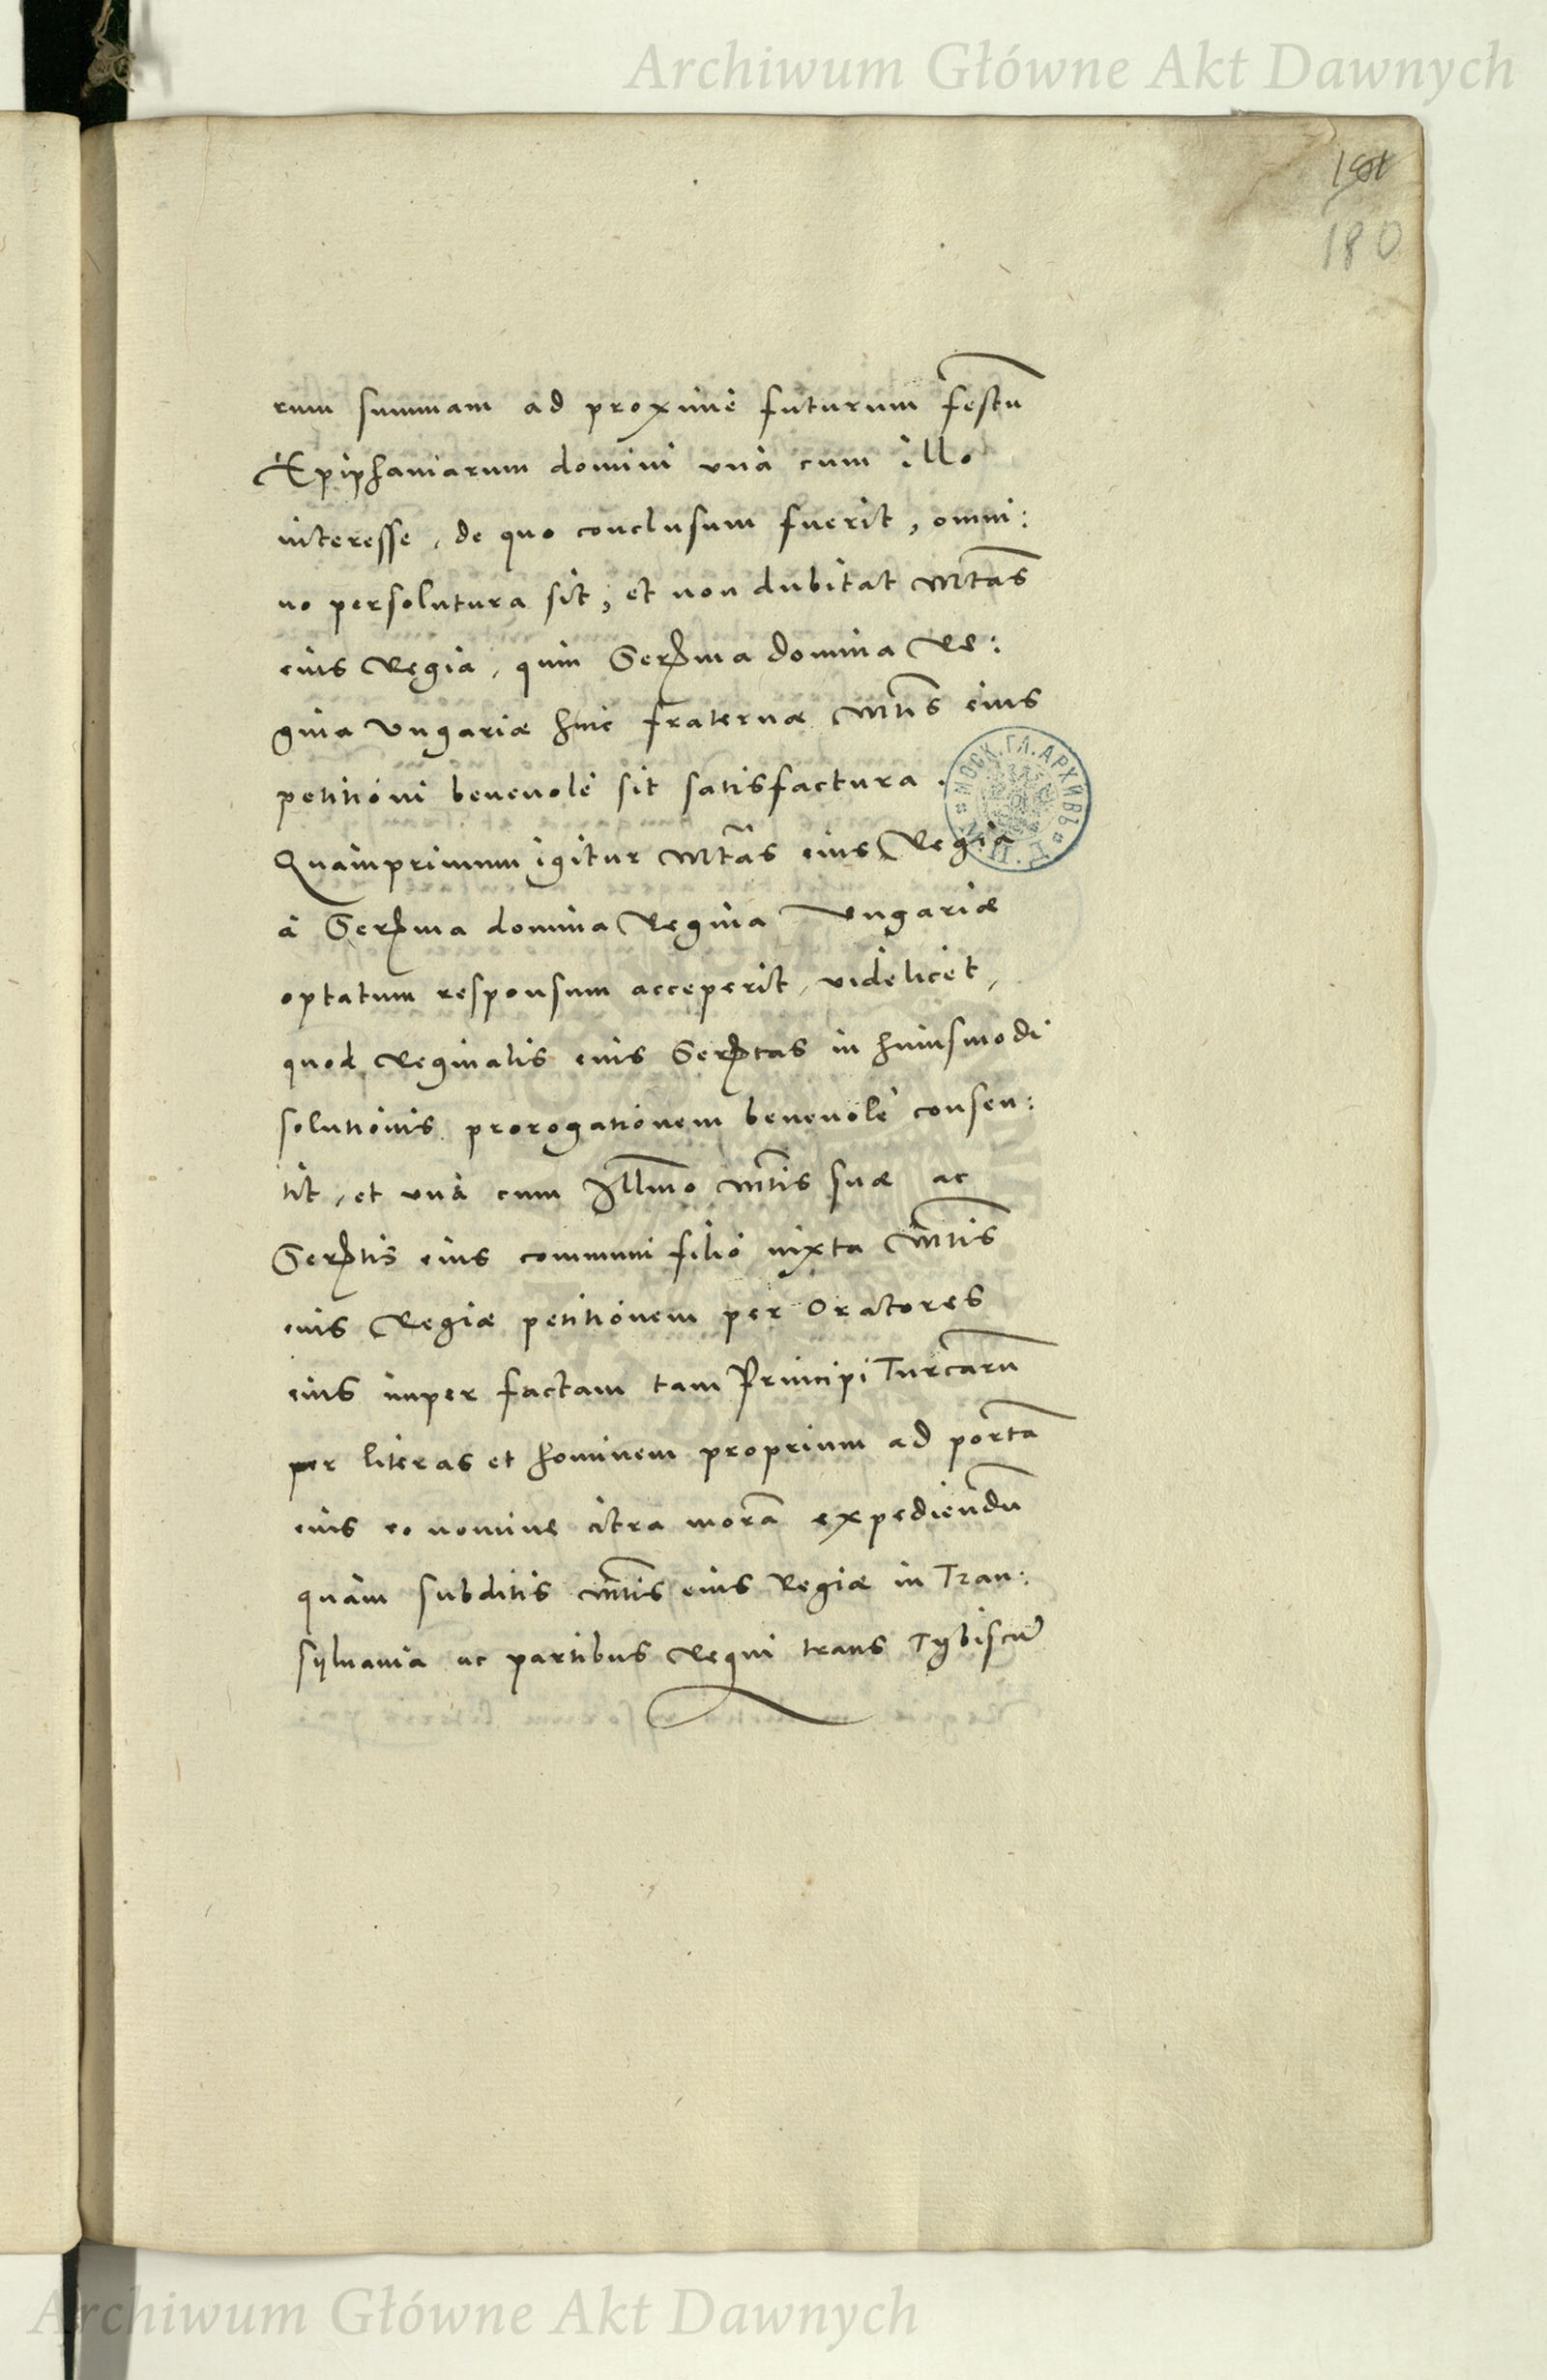 Archiwum Główne Akt Dawnych
180
rum summam ad proximè futurum festū
Epiphaniarum domini vnà cum illo
interesse, de quo conclusum fuerit, omni:
no persolutura sit, et non dubitat Mtās
eius Regia, quin Serma domina Re:
gina Vngariæ huic fraternæ Mtīs eius
petitioni beneuolè sit satisfactura.
Quamprimum igitur Mtās eius Regia
à Serma domina Regina Vngariæ
optatum responsum acceperit, videlicet,
quod Reginalis eius Sertas in huiusmodi
solutionis prorogationem beneuolè consen:
tit, et vnà cum Illmo Mtīs suæ ac
Sertis eius communi filio iuxta Mtīs
eius Regiæ petitionem per Oratores
eius nuper factam tam Principi Turcarū
per literas et hominem proprium ad portā
eius eo nomine citra morā expediendū
quàm subditis Mtīs eius Regiæ in Tran:
syluania ac partibus Regni trans Tybiscū
МОСК. ГЛ. АРХИВЪ
Archiwum Główne Akt Dawnych